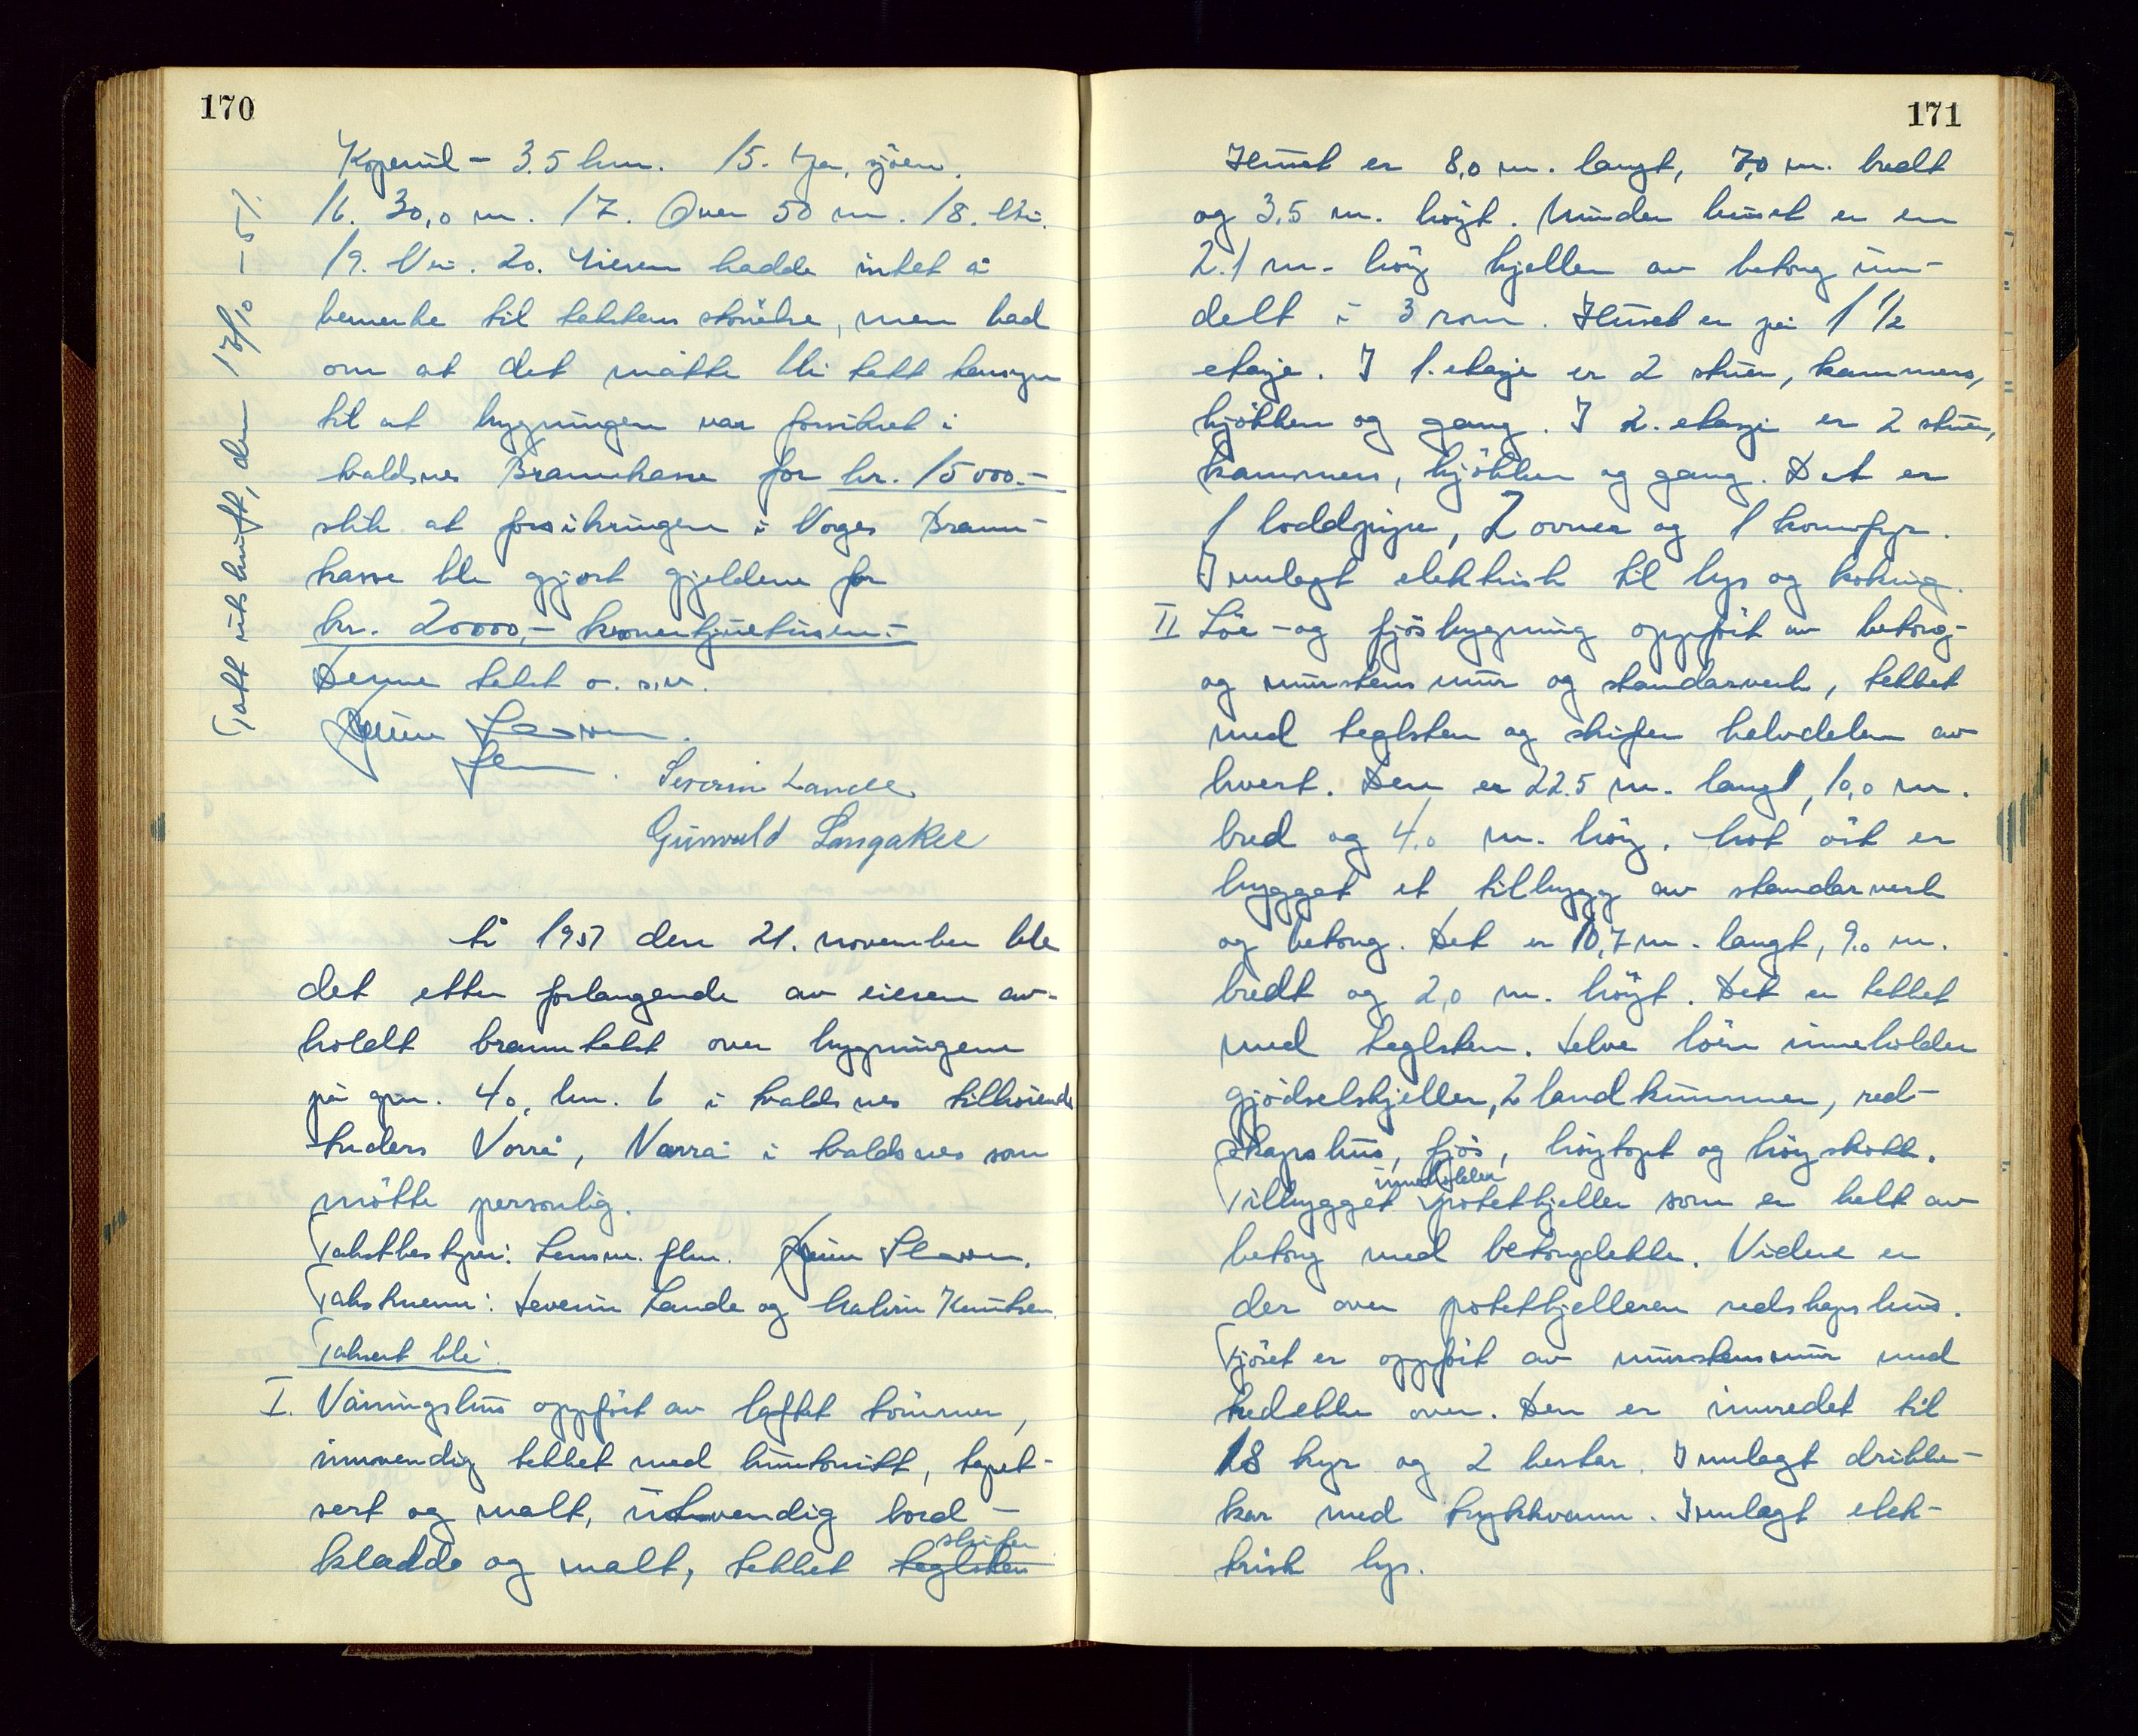 170
Kopervik - 3.5 km. 15. Ja, sjøen.
16. 30,0 m. 17. Over 50 m. 18. Nei.
19. Nei. 20. Eieren hadde intet å
bemerke til takstens størelse, men bad
om at det måtte bli tatt hensyn
til at bygningen var forsikret i
Avaldsnes Brannkasse for kr. 15000.-
slik at forsikringen i Norges Brann-
kasse ble gjort gjeldene for
kr. 20000,- kronertjuetusen.-
Denne takst o. s. v.
Severin Lande
Gunvald Langaker
Tatt utskrift, den 17/10 - 51
År 1951 den 21. november ble
det etter forlangende av eieren av-
holdt branntakst over bygningene
på gnr. 40, bnr. 6 i Avaldsnes tilhørende
Anders Vorrå, Vorrå i Avaldsnes som
møtte personlig.
Takstbestyrer: Lensm. flm.
Takstmenn: Severin Lande og Malvin Knutsen.
Taksert ble:
I. Våningshus oppført av laftet tømmer,
innvendig tekket med huntonitt, tapet-
sert og malt, utvendig bord-
kledde og malt, tekket teglsten skifer
171
Huset er 8,0 m. langt, 7,0 m. bredt
og 3.5 m. høyt. Under huset er en
2.1 m. høy kjeller av betong inn-
delt i 3 rom. Huset er på 1 1/2
etasje. I 1. etasje er 2 stuer, kammers,
kjøkken og gang. I 2. etasje er 2 stuer,
kammers, kjøkken og gang. Det er
1 loddpipe, 2 ovner og 1 komfyr.
Innlagt elektrisk til lys og koking.
II Løe- og fjøsbygning oppført av betong-
og murstens mur og standarverk, tekket
med teglsten og skifer halvdelen av
hvert. Den er 22.5 m. langt, 10,0 m.
bred og 4.0 m. høy. Mot øst er
bygget et tilbygg av standarverk
og betong. Det er 10,7 m. langt, 9.0 m.
bredt og 2,0 m. høyt. Det er tekket
med teglsten. Selve løen inneholder
gjødselskjeller, 2 landkummer, red-
skapshus, fjøs, høytopt og høyskott.
Tilbygget inneholder potetkjeller som er helt av
betong med betongdekke. Videre er
der over potetkjelleren redskapshus.
Fjøset er oppført av murstensmur med
tredekke over. Den er innredet til
18 kyr og 2 hester. Innlagt drikke-
kar med trykkvann. Innlagt elek-
trisk lys.